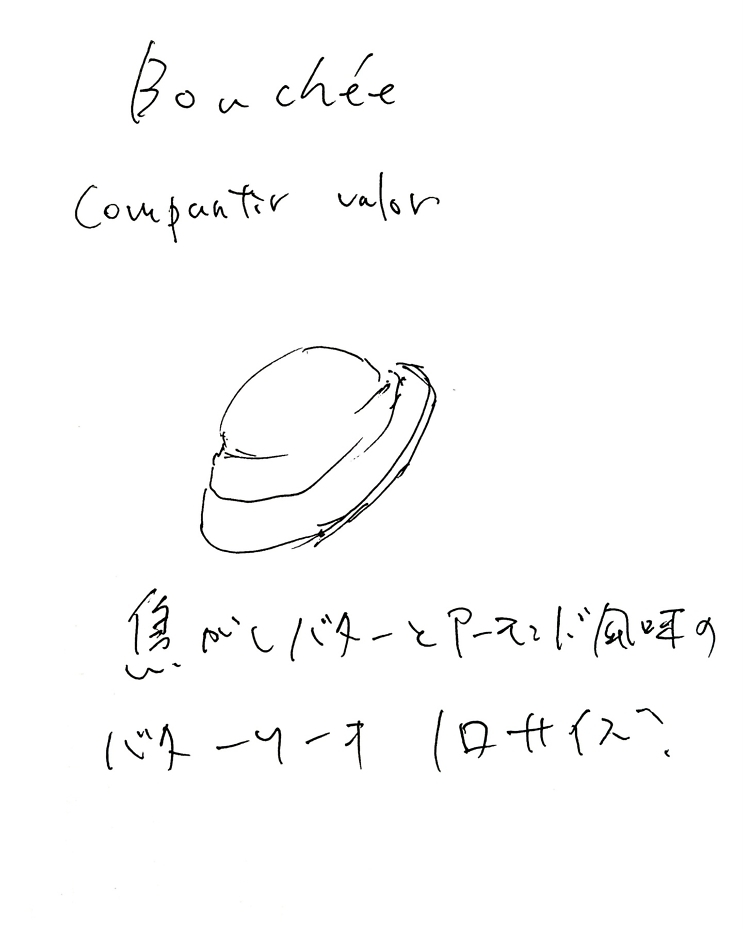 Bouchée
Compartir valor
焦がしバターとアーモンド風味の
バターリーオ 1口サイズ?